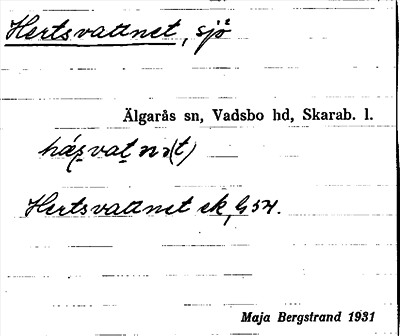 Hertsvattnet, sjö
Älgarås sn, Vadsbo hd, Skarab. l.
Hertsvattnet ek, G 54.
Maja Bergstrand 1931